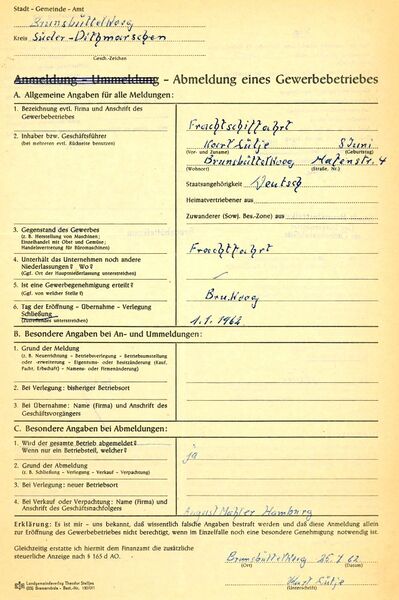 Stadt - Gemeinde - Amt
Brunsbüttelkoog
Kreis Süder-Dithmarschen
Gesch.-Zeichen
Anmeldung - Ummeldung - Abmeldung eines Gewerbebetriebes
A. Allgemeine Angaben für alle Meldungen:
1. Bezeichnung evtl. Firma und Anschrift des
Gewerbebetriebes
Frachtschiffahrt
2. Inhaber bzw. Geschäftsführer
(bei mehreren evtl. Rückseite benutzen)
Karl Lütje 8 Juni
(Vor- und Zuname) (Geburtstag)
Brunsbüttelkoog, Hafenstr. 4
(Wohnort) (Straße, Nr.)
Staatsangehörigkeit Deutsch
Heimatvertriebener aus
Zuwanderer (Sowj. Bes.-Zone) aus
3. Gegenstand des Gewerbes
(z. B. Herstellung von Maschinen;
Einzelhandel mit Obst und Gemüse;
Handelsvertretung für Büromaschinen)
Frachtfahrt
4. Unterhält das Unternehmen noch andere
Niederlassungen? Wo?
(Ggf. Ort der Hauptniederlassung unterstreichen)
5. Ist eine Gewerbegenehmigung erteilt?
(Ggf. von welcher Stelle?)
Bru.koog
6. Tag der Eröffnung - Übernahme - Verlegung
Schließung
(Zutreffendes unterstreichen)
1.1.1962
B. Besondere Angaben bei An- und Ummeldungen:
1. Grund der Meldung
(z. B. Neuerrichtung - Betriebsverlegung - Betriebsumstellung
oder -erweiterung - Eigentums- oder Besitzänderung (Kauf,
Pacht, Erbschaft) - Namens- oder Firmenänderung)
2. Bei Verlegung: bisheriger Betriebsort
3. Bei Übernahme: Name (Firma) und Anschrift des
Geschäftsvorgängers
C. Besondere Angaben bei Abmeldungen:
1. Wird der gesamte Betrieb abgemeldet?
Wenn nur ein Betriebsteil, welcher?
ja
2. Grund der Abmeldung
(z. B. Schließung - Verlegung - Verkauf - Verpachtung)
3. Bei Verlegung: neuer Betriebsort
4. Bei Verkauf oder Verpachtung: Name (Firma) und
Anschrift des Geschäftsnachfolgers
August Mahler Hamburg
Erklärung: Es ist mir - uns bekannt, daß wissentlich falsche Angaben bestraft werden und daß diese Anmeldung allein
zur Eröffnung des Gewerbebetriebes nicht berechtigt, wenn im Einzelfalle noch eine besondere Genehmigung notwendig ist.
Gleichzeitig erstatte ich hiermit dem Finanzamt die zusätzliche
steuerliche Anzeige nach § 165 d AO.
Brunsbüttelkoog 25.7.62
(Ort) (Datum)
Karl Lütje
(Unterschrift)
Landgemeindeverlag Theodor Steltjes